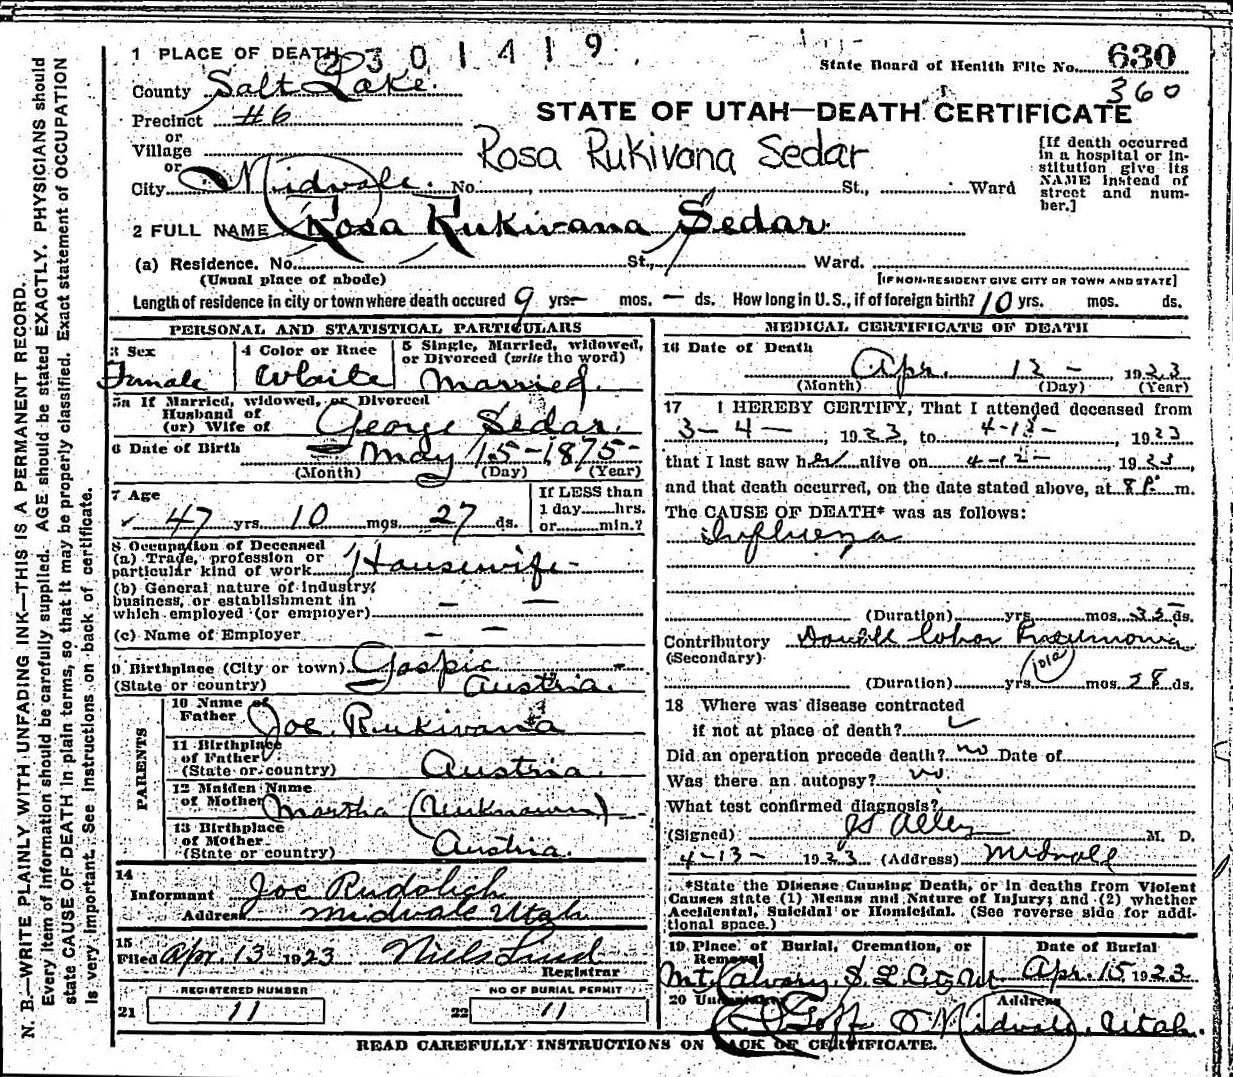 1 PLACE OF DEATH 2301419.
State Board of Health File No. 630
360
County Salt Lake.
STATE OF UTAH—DEATH CERTIFICATE
Precinct #6
or
Village
Rosa Rukivana Sedar
[If death occurred in a hospital or institution give its NAME instead of street and number.]
or
City Midvale. No. , St., Ward
2 FULL NAME Rosa Rukivana Sedar.
(a) Residence. No. St., Ward.
(Usual place of abode) [IF NON-RESIDENT GIVE CITY OR TOWN AND STATE]
Length of residence in city or town where death occured 9 yrs. — mos. — ds. How long in U.S., if of foreign birth? 10 yrs. mos. ds.
PERSONAL AND STATISTICAL PARTICULARS
3 Sex
Female
4 Color or Race
White
5 Single, Married, widowed, or Divorced (write the word)
Married.
5a If Married, widowed, or Divorced
Husband of
(or) Wife of George Sedar.
6 Date of Birth May 15-1875-
(Month) (Day) (Year)
7 Age
47 yrs. 10 mos. 27 ds.
If LESS than
1 day hrs.
or min.?
8 Occupation of Deceased
(a) Trade, profession or
particular kind of work Housewife -
(b) General nature of industry,
business, or establishment in
which employed (or employer) — —
(c) Name of Employer — —
9 Birthplace (City or town) Gospic
(State or country) Austria.
PARENTS
10 Name of
Father Joe Rukivana
11 Birthplace
of Father
(State or country) Austria.
12 Maiden Name
of Mother Martha (Unknown)
13 Birthplace
of Mother
(State or country) Austria.
14
Informant Joe Rudolich
Address Midvale Utah
15
Filed Apr. 13 1923 Niels Lind
Registrar
REGISTERED NUMBER
21 11
NO OF BURIAL PERMIT
22 11
MEDICAL CERTIFICATE OF DEATH
16 Date of Death
Apr. 12 - 1923
(Month) (Day) (Year)
17 I HEREBY CERTIFY, That I attended deceased from
3-4-, 1923, to 4-12-, 1923
that I last saw her alive on 4-12-, 1923,
and that death occurred, on the date stated above, at 8 P. m.
The CAUSE OF DEATH* was as follows:
Influenza
(Duration) yrs. mos. 35 ds.
Contributory Double lobar Pneumonia
(Secondary)
101a
(Duration) yrs. mos. 28 ds.
18 Where was disease contracted
if not at place of death?
Did an operation precede death? no Date of
Was there an autopsy? no
What test confirmed diagnosis?
(Signed) M. D.
4-13- 1923 (Address) Midvale
*State the Disease Causing Death, or in deaths from Violent
Causes state (1) Means and Nature of Injury; and (2) whether
Accidental, Suicidal or Homicidal. (See reverse side for additional space.)
19 Place of Burial, Cremation, or
Removal
Mt. Calvary, S. L. City Ut
Date of Burial
Apr. 15, 1923
20 Undertaker Goff
Address
Midvale, Utah.
READ CAREFULLY INSTRUCTIONS ON BACK OF CERTIFICATE.
N. B.—WRITE PLAINLY WITH UNFADING INK—THIS IS A PERMANENT RECORD.
Every item of information should be carefully supplied. AGE should be stated EXACTLY. PHYSICIANS should
state CAUSE OF DEATH in plain terms, so that it may be properly classified. Exact statement of OCCUPATION
is very important. See instructions on back of certificate.